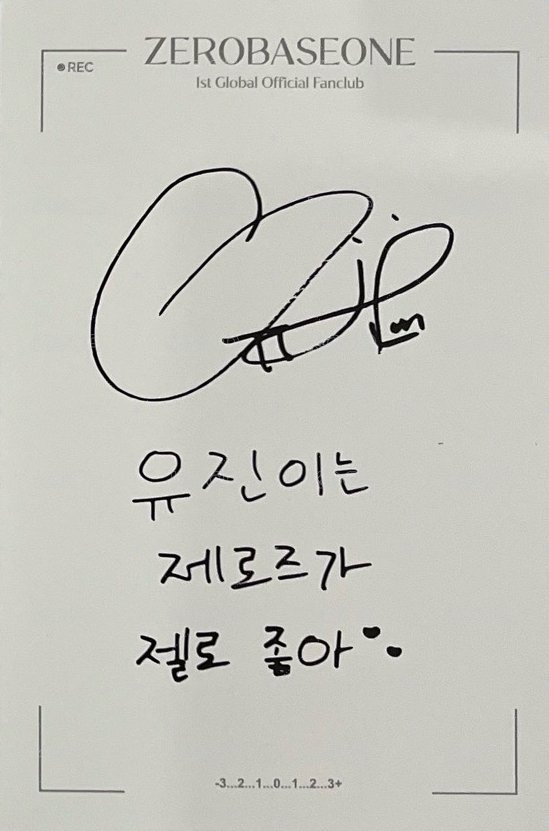 ZEROBASEONE
REC
1st Global Official Fanclub
유진이는
제로즈가
젤로 좋아
-3...2...1...0...1...2...3+